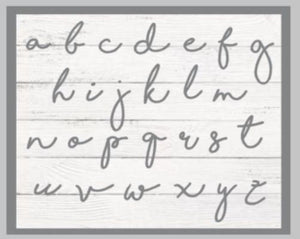 a b c d e f g
h i j k l m
n o p q r s t
u v w x y z